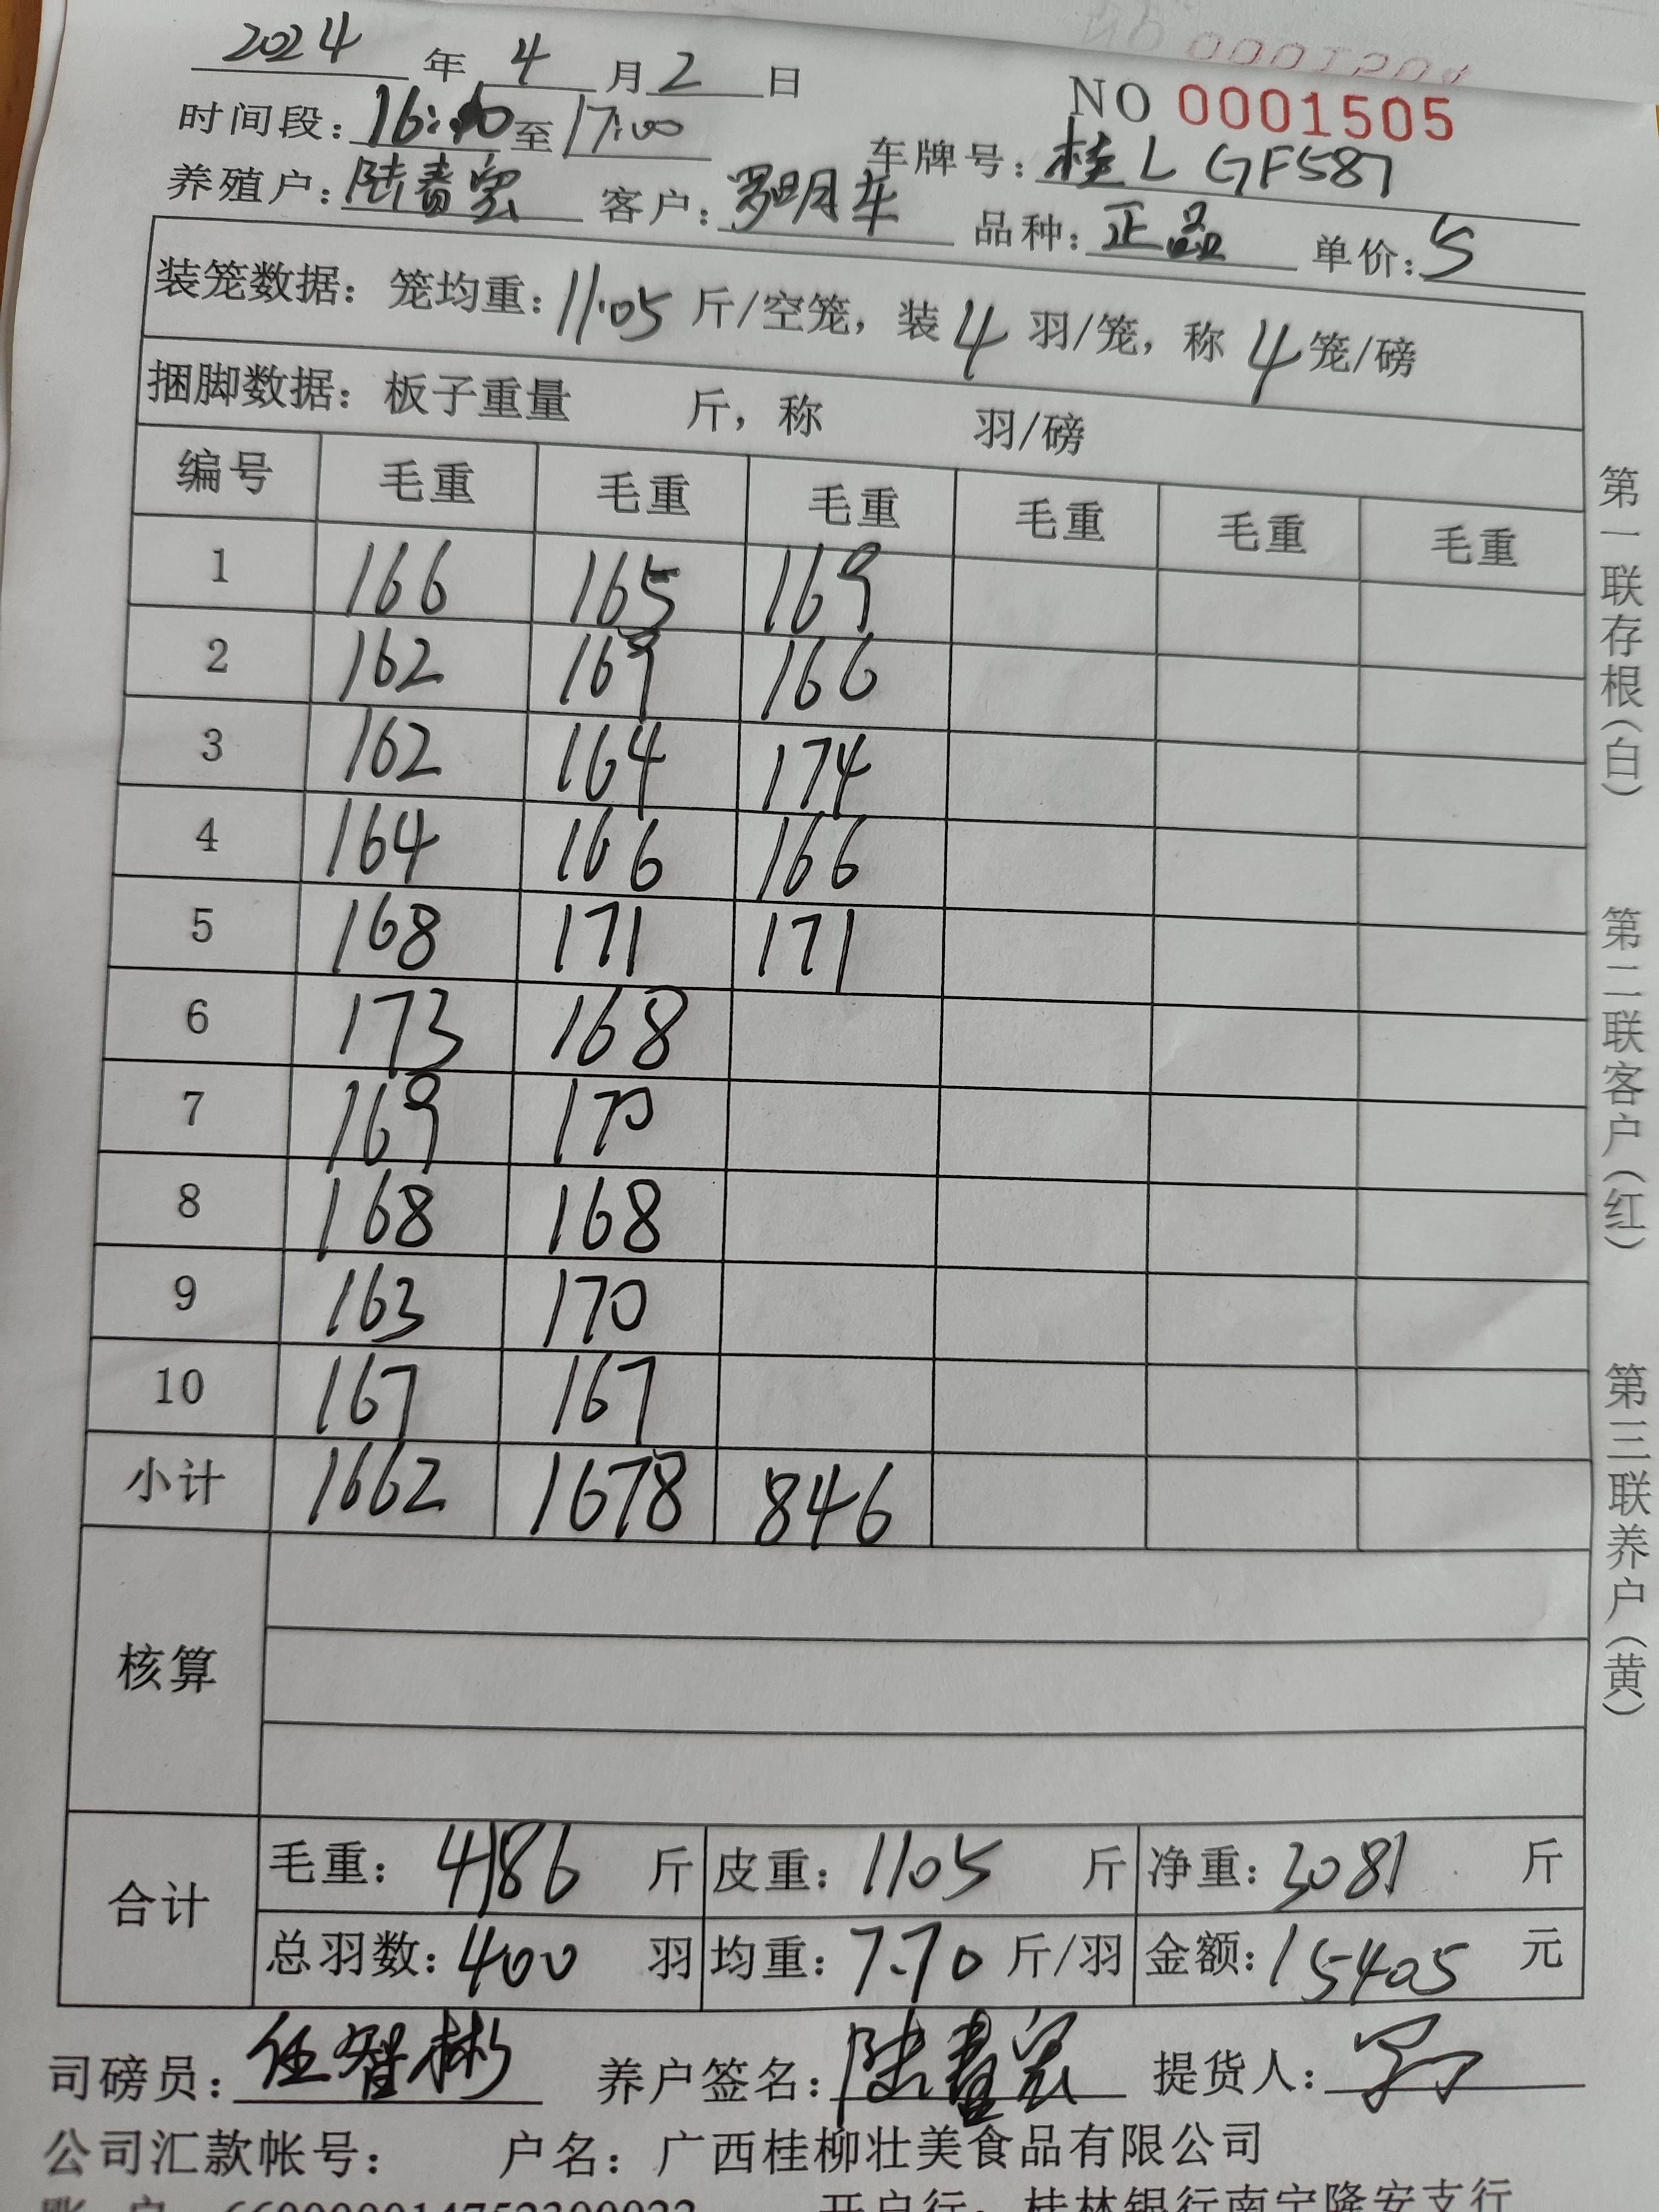 2024 年 4 月 2 日
NO 0001505
时间段: 16: 至 17:00 车牌号: 桂L GF587
养殖户: 陆春宏 客户: 罗明车 品种: 正品 单价: 5
装笼数据: 笼均重: 11.05 斤/空笼, 装 4 羽/笼, 称 4 笼/磅
捆脚数据: 板子重量 斤, 称 羽/磅
编号 毛重 毛重 毛重 毛重 毛重 毛重
1 166 165 169
2 162 169 166
3 162 164 174
4 164 166 166
5 168 171 171
6 173 168
7 169 170
8 168 168
9 163 170
10 167 167
小计 1662 1678 846
核算
合计
毛重: 4186 斤 皮重: 1105 斤 净重: 3081 斤
总羽数: 400 羽 均重: 7.70 斤/羽 金额: 15405 元
司磅员: 任智彬 养户签名: 陆春宏 提货人:
公司汇款帐号: 户名: 广西桂柳壮美食品有限公司
开户行: 桂林银行南宁隆安支行
第一联存根(白)
第二联客户(红)
第三联养户(黄)